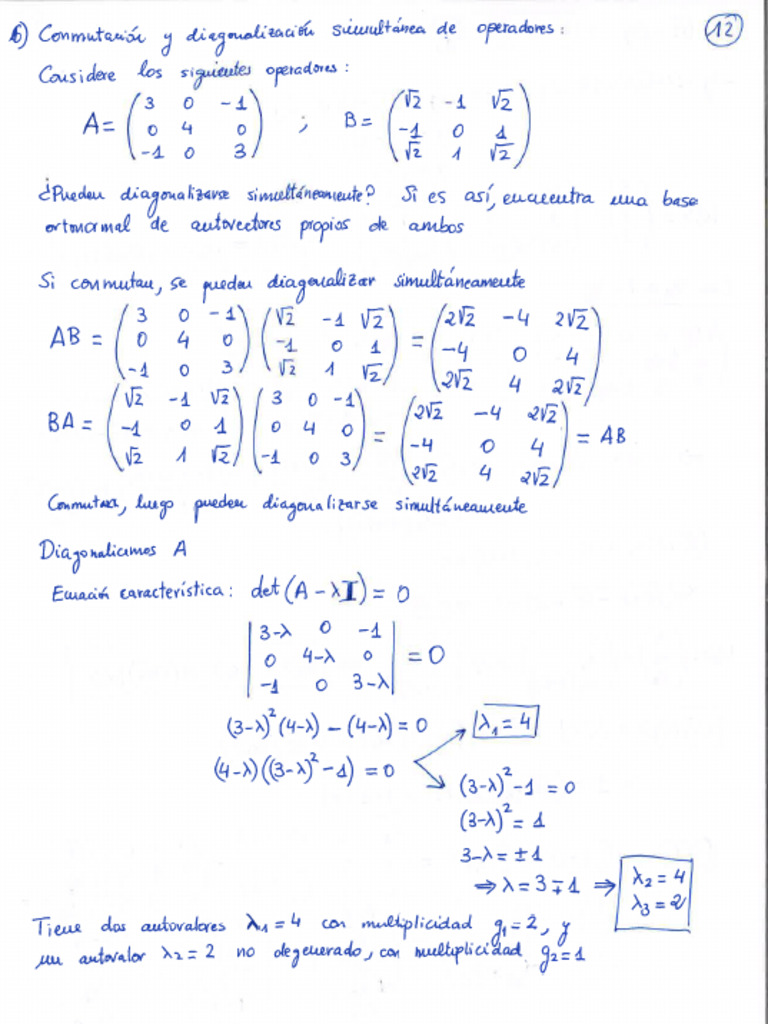 6) Conmutación y diagonalización simultánea de operadores: 12
Considere los siguientes operadores:
A = (3 0 -1; 0 4 0; -1 0 3) ; B = (√2 -1 √2; -1 0 1; √2 1 √2)
¿Pueden diagonalizarse simultáneamente? Si es así, encuentra una base
ortonormal de autovectores propios de ambos
Si conmutan, se pueden diagonalizar simultáneamente
AB = (3 0 -1; 0 4 0; -1 0 3) (√2 -1 √2; -1 0 1; √2 1 √2) = (2√2 -4 2√2; -4 0 4; 2√2 4 2√2)
BA = (√2 -1 √2; -1 0 1; √2 1 √2) (3 0 -1; 0 4 0; -1 0 3) = (2√2 -4 2√2; -4 0 4; 2√2 4 2√2) = AB
Conmutan, luego pueden diagonalizarse simultáneamente
Diagonalicemos A
Ecuación característica: det(A - λI) = 0
|3-λ 0 -1; 0 4-λ 0; -1 0 3-λ| = 0
(3-λ)²(4-λ) - (4-λ) = 0
λ₁ = 4
(4-λ)((3-λ)² - 1) = 0
(3-λ)² - 1 = 0
(3-λ)² = 1
3-λ = ±1
⇒ λ = 3 ∓ 1 ⇒ λ₂ = 4
λ₃ = 2
Tiene dos autovalores λ₁ = 4 con multiplicidad g₁ = 2, y
un autovalor λ₂ = 2 no degenerado, con multiplicidad g₂ = 1